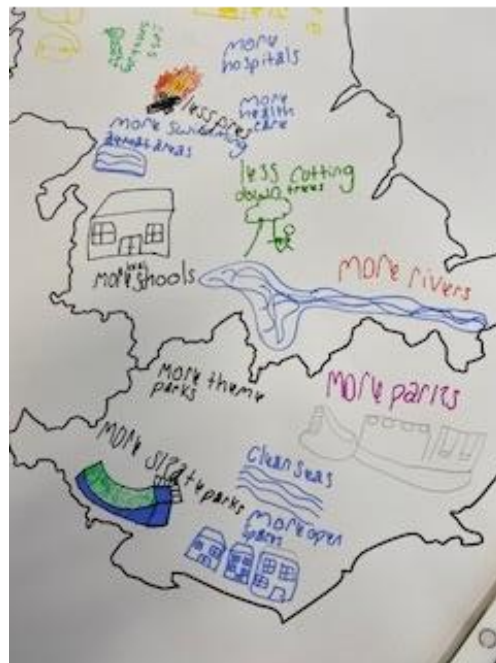 more
hospitals
less
less fires
more
health
care
more swimming
areas
less cutting
down trees
more local schools
more rivers
more theme
parks
more parks
more skate parks
clean seas
more open
parks